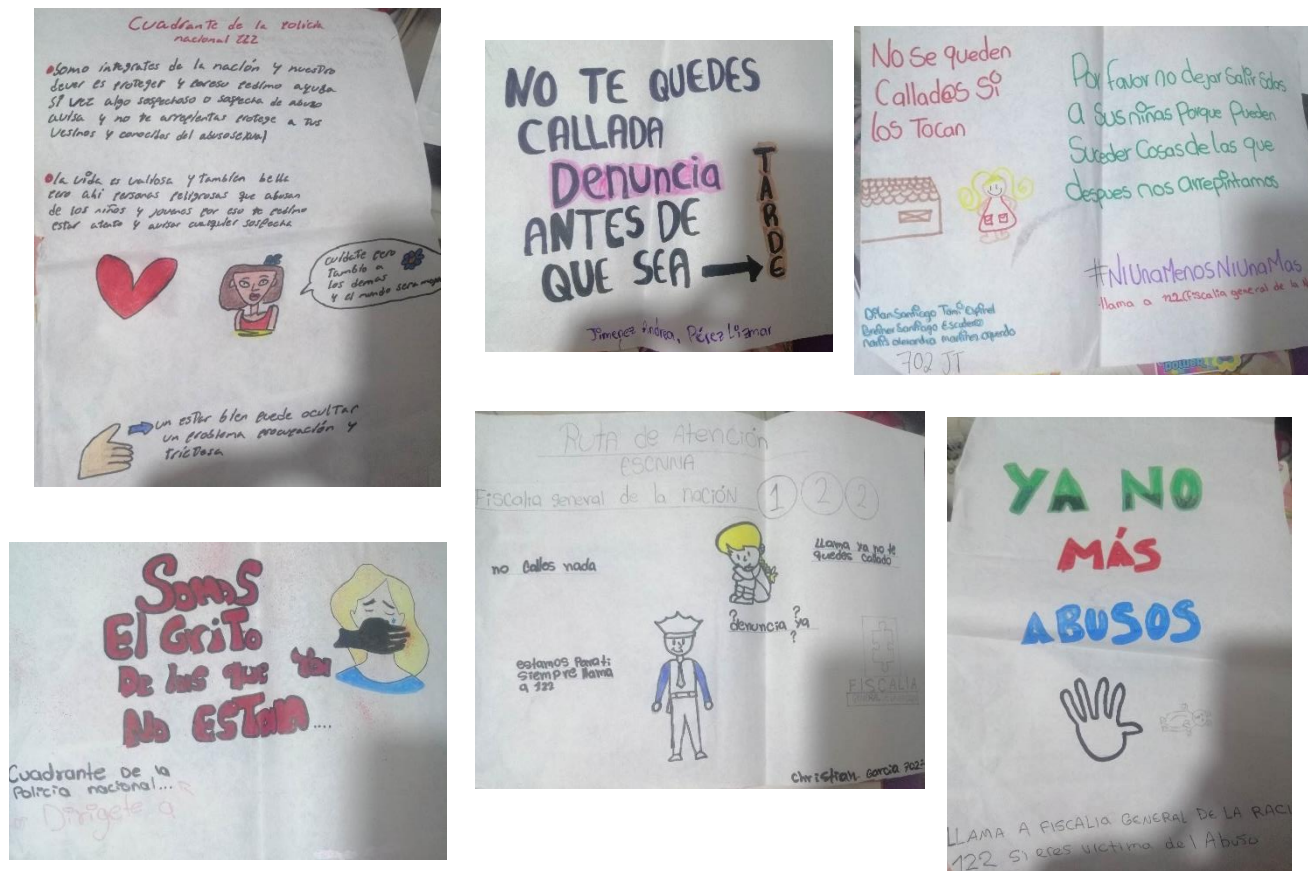 Cuadrante de la Policia
nacional 122
Somo integrates de la nación y nuestro
dever es proteger y poreso pedimo ayuda
si vez algo sospechoso o sospecha de abuso
avisa y no te arrepientas protege a tus
vesinos y conocidos del abuso sexual
la vida es valiosa y tambien bella
pero ahi personas peligrosas que abusan
de los niños y jovenes por eso te pedimo
estar atento y avisar cualquier sospecha
cuidate pero
también a
los demas
y el mundo sera
un estar bien puede ocultar
un problema procupación y
trictesa
NO TE QUEDES
CALLADA
Denuncia
ANTES DE
QUE SEA
TARDE
Jimenez Andrea, Pérez Lizmar
No se queden
Callad@s Si
los Tocan
Por favor no dejar Salir Solas
a Sus niñas Porque Pueden
Suceder Cosas de las que
despues nos arrepintamos
#NiUnaMenosNiUnaMas
llama a 122(Fiscalia general de la
Santiago
Santiago
702 JT
Somos
El GriTo
De las que Ya
No ESTan....
Cuadrante De la
Policia nacional...
Dirigete a
RUTA de Atención
ESCNNA
Fiscalia general de la nación 122
no Calles nada
LLama ya no te
quedes callado
?
?
denuncia ya
?
estamos Para ti
siempre llama
a 122
FISCALIA
Christian Garcia 702
YA NO
MÁS
ABUSOS
LLAMA A FISCALIA GENERAL DE LA NACI
122 si eres victima del Abuso